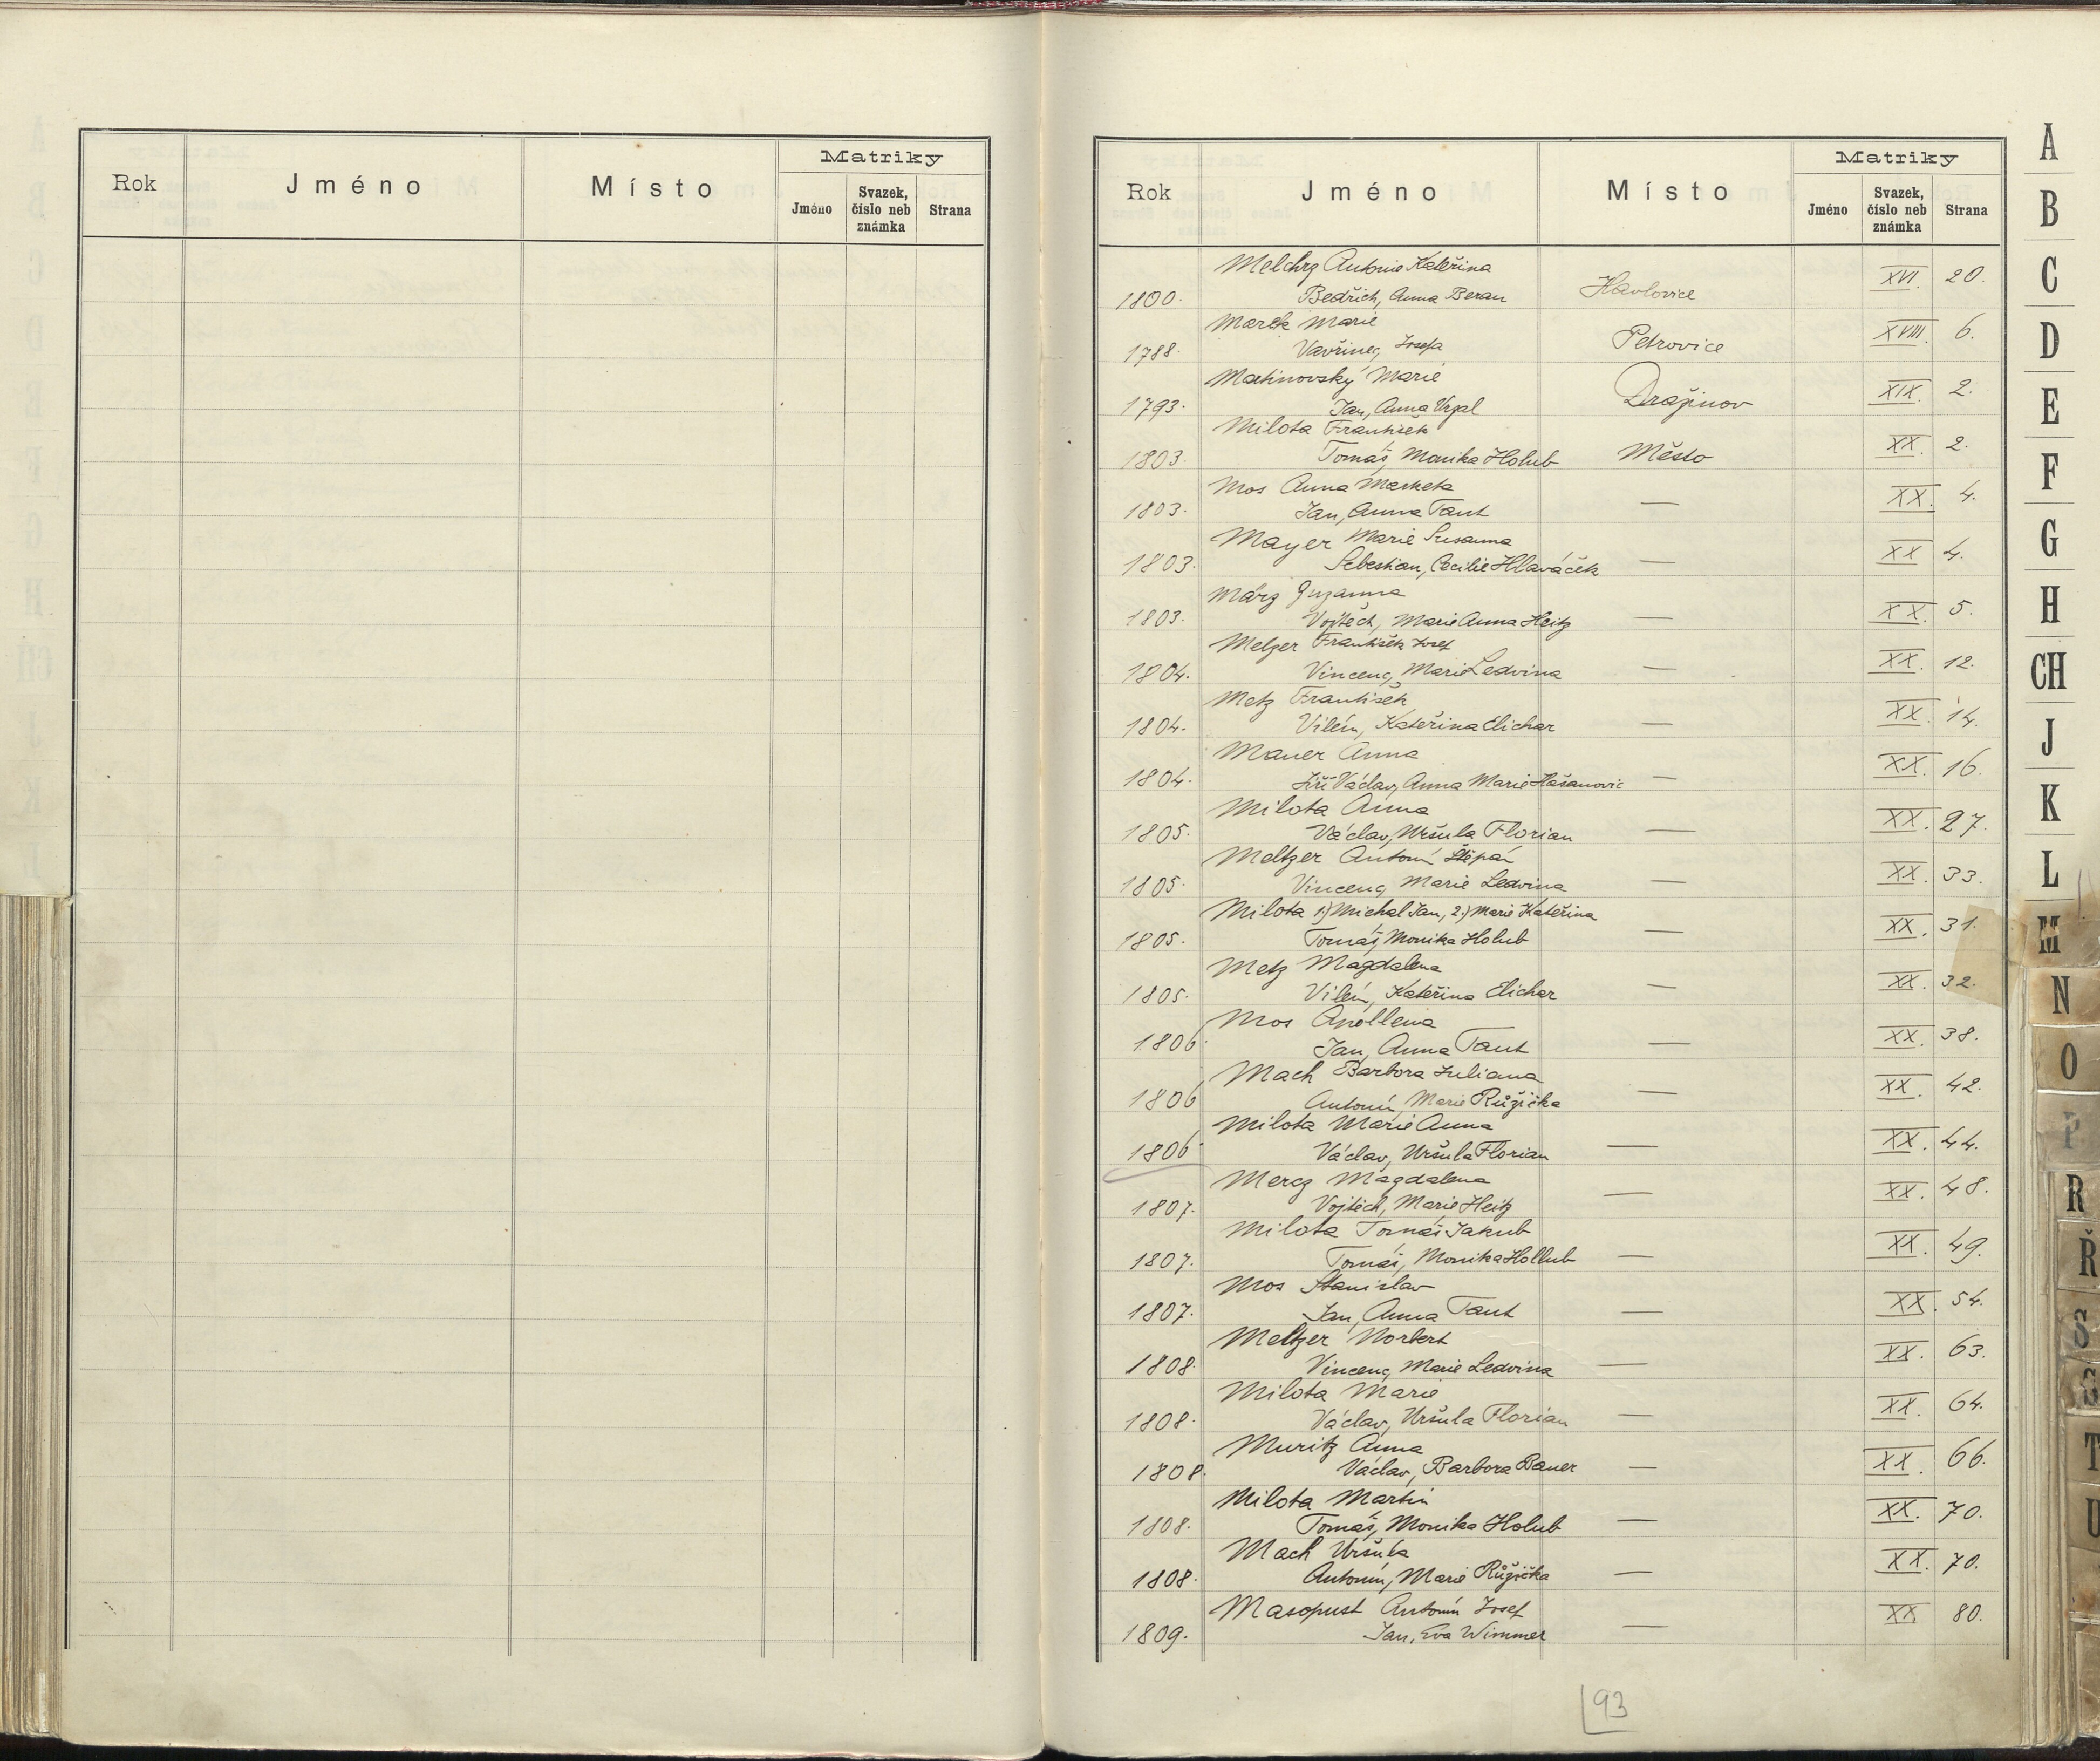 Rok Jméno Místo Matriky
Jméno Svazek, číslo neb známka Strana
Rok Jméno Místo Matriky
Jméno Svazek, číslo neb známka Strana
Melchrz Antonie Kateřina
1800. Bedřich, Anna Beran Havlovice XVI. 20.
Marek Marie
1788. Vavřinec, Josefa Petrovice XVIII. 6.
Martinovský Marie
1793. Jan, Anna Vrzal Dražinov XIX. 2.
Milota František
1803. Tomáš, Monika Holub Město XX. 2.
Mos Anna Marketa
1803. Jan, Anna Taut — XX. 4.
Mayer Marie Susanna
1803. Sebestian, Cecilie Hlaváček — XX 4.
März Zuzanna
1803. Vojtěch, Marie Anna Heitz — XX. 5.
Melzer František Josef
1804. Vincenc, Marie Ledvina — XX. 12.
Metz František
1804. Vilém, Kateřina Elichar — XX. 14.
Mauer Anna
1804. Jiří Václav, Anna Marie Hašanovic — XX. 16.
Milota Anna
1805. Václav, Uršula Florian — XX. 27.
Meltzer Antonín Štěpán
1805. Vincenc, Marie Ledvina — XX. 33.
Milota 1.) Michal Jan, 2.) Marie Kateřina
1805. Tomáš, Monika Holub — XX. 31.
Metz Magdalena
1805. Vilém, Kateřina Elichar — XX. 32.
Mos Apollena
1806. Jan, Anna Taut — XX. 38.
Mach Barbora Juliana
1806 Antonín, Marie Růžička — XX. 42.
Milota Marie Anna
1806 Václav, Uršula Florian — XX. 44.
Mercz Magdalena
1807. Vojtěch, Marie Heitz — XX. 48.
Milota Tomáš Jakub
1807. Tomáš, Monika Hollub — XX. 49.
Mos Stanislav
1807. Jan, Anna Taut — XX. 54.
Meltzer Norbert
1808. Vincenc, Marie Ledvina — XX. 63.
Milota Marie
1808. Václav, Uršula Florian — XX. 64.
Muritz Anna
1808. Václav, Barbora Bauer — XX. 66.
Milota Martin
1808. Tomáš, Monika Holub — XX. 70.
Mach Uršula
1808. Antonín, Marie Růžička — XX. 70.
Masopust Antonín Josef
1809. Jan, Eva Wimmer — XX. 80.
93
A
B
C
D
E
F
G
H
CH
J
K
L
M
N
O
P
R
Ř
S
Š
T
U